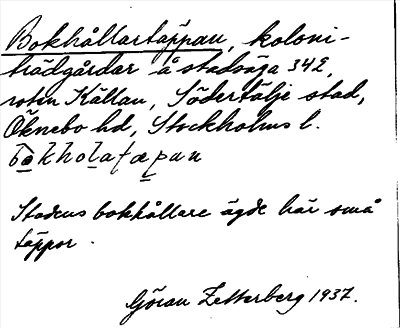 Bokhållartäppan, koloni-
trädgårdar å stadsäga 342,
roten Källan, Södertälje stad,
Öknebo hd, Stockholms l.
bo̲khol̲atæ̲pan
Stadens bokhållare ägde här små
täppor.
Göran Zetterberg 1937.